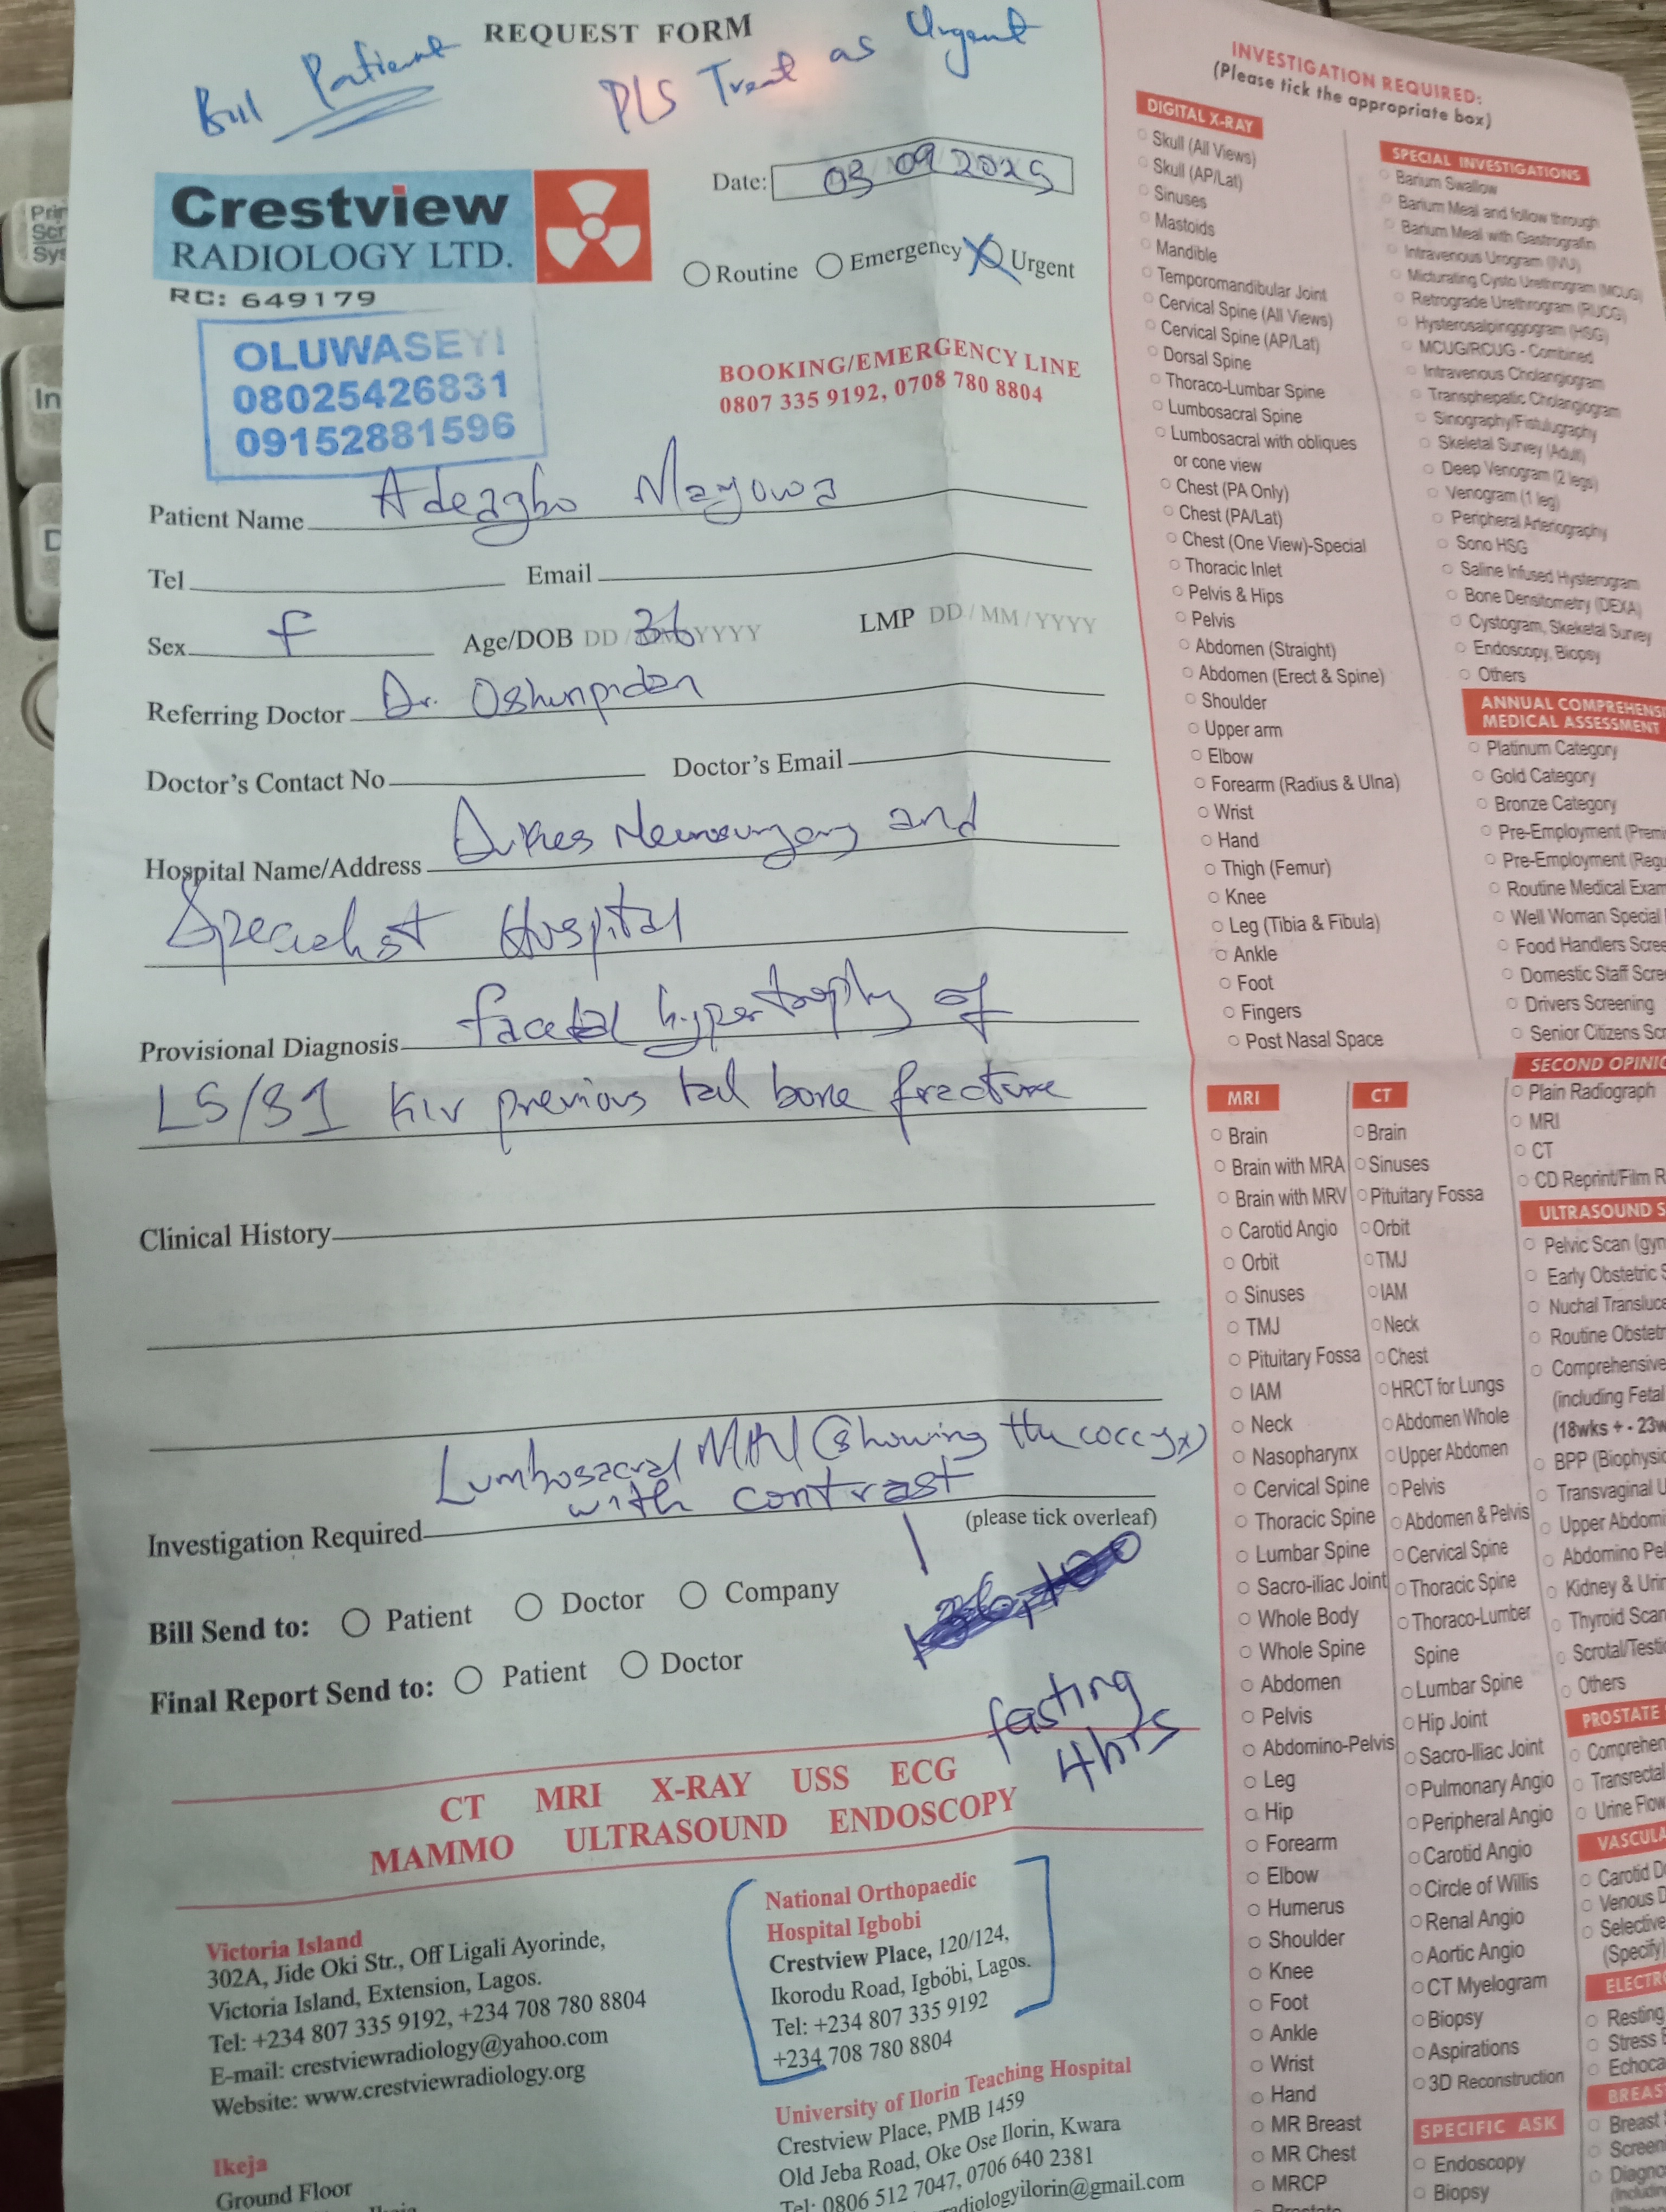 REQUEST FORM
Bill Patient
PLS Treat as Urgent
Crestview
RADIOLOGY LTD.
RC: 649179
Date: 03 09 2025
Routine Emergency Urgent
OLUWASEYI
08025426831
09152881596
BOOKING/EMERGENCY LINE
0807 335 9192, 0708 780 8804
Patient Name Adeagbo Mayowa
Tel Email
Sex F Age/DOB DD / YYYY 36 LMP DD / MM / YYYY
Referring Doctor Dr.
Doctor's Contact No Doctor's Email
Hospital Name/Address Neurosurgery and
Specialist Hospital
Provisional Diagnosis facetal hypertrophy of
L5/S1 KIV previous tail bone fracture
Clinical History
Lumbosacral MRI (showing the coccyx)
with contrast
Investigation Required
(please tick overleaf)
Bill Send to: Patient Doctor Company
Final Report Send to: Patient Doctor
fasting
4hrs
CT MRI X-RAY USS ECG
MAMMO ULTRASOUND ENDOSCOPY
Victoria Island
302A, Jide Oki Str., Off Ligali Ayorinde,
Victoria Island, Extension, Lagos.
Tel: +234 807 335 9192, +234 708 780 8804
E-mail: crestviewradiology@yahoo.com
Website: www.crestviewradiology.org
Ikeja
Ground Floor
National Orthopaedic
Hospital Igbobi
Crestview Place, 120/124,
Ikorodu Road, Igbobi, Lagos.
Tel: +234 807 335 9192
+234 708 780 8804
University of Ilorin Teaching Hospital
Crestview Place, PMB 1459
Old Jeba Road, Oke Ose Ilorin, Kwara
Tel: 0806 512 7047, 0706 640 2381
adiologyilorin@gmail.com
INVESTIGATION REQUIRED:
(Please tick the appropriate box)
DIGITAL X-RAY
Skull (All Views)
Skull (AP/Lat)
Sinuses
Mastoids
Mandible
Temporomandibular Joint
Cervical Spine (All Views)
Cervical Spine (AP/Lat)
Dorsal Spine
Thoraco-Lumbar Spine
Lumbosacral Spine
Lumbosacral with obliques
or cone view
Chest (PA Only)
Chest (PA/Lat)
Chest (One View)-Special
Thoracic Inlet
Pelvis & Hips
Pelvis
Abdomen (Straight)
Abdomen (Erect & Spine)
Shoulder
Upper arm
Elbow
Forearm (Radius & Ulna)
Wrist
Hand
Thigh (Femur)
Knee
Leg (Tibia & Fibula)
Ankle
Foot
Fingers
Post Nasal Space
SPECIAL INVESTIGATIONS
Barium Swallow
Barium Meal and follow through
Barium Meal with Gastrografin
Intravenous Urogram (IVU)
Micturating Cysto Urethrogram (MCUG)
Retrograde Urethrogram (RUCG)
Hysterosalpinggogram (HSG)
MCUG/RCUG - Combined
Intravenous Cholangiogram
Transphepatic Cholangiogram
Sinography/Fistulugraphy
Skeletal Survey (Adult)
Deep Venogram (2 legs)
Venogram (1 leg)
Peripheral Arteriography
Sono HSG
Saline Infused Hysterogram
Bone Densitometry (DEXA)
Cystogram, Skeketal Survey
Endoscopy, Biopsy
Others
ANNUAL COMPREHENSI
MEDICAL ASSESSMENT
Platinum Category
Gold Category
Bronze Category
Pre-Employment (Premi
Pre-Employment (Regu
Routine Medical Exam
Well Woman Special
Food Handlers Scree
Domestic Staff Scre
Drivers Screening
Senior Citizens Scr
SECOND OPINIO
Plain Radiograph
MRI
CT
CD Reprint/Film R
MRI
Brain
Brain with MRA
Brain with MRV
Carotid Angio
Orbit
Sinuses
TMJ
Pituitary Fossa
IAM
Neck
Nasopharynx
Cervical Spine
Thoracic Spine
Lumbar Spine
Sacro-iliac Joint
Whole Body
Whole Spine
Abdomen
Pelvis
Abdomino-Pelvis
Leg
Hip
Forearm
Elbow
Humerus
Shoulder
Knee
Foot
Ankle
Wrist
Hand
MR Breast
MR Chest
MRCP
Prostate
CT
Brain
Sinuses
Pituitary Fossa
Orbit
TMJ
IAM
Neck
Chest
HRCT for Lungs
Abdomen Whole
Upper Abdomen
Pelvis
Abdomen & Pelvis
Cervical Spine
Thoracic Spine
Thoraco-Lumber
Spine
Lumbar Spine
Hip Joint
Sacro-Iliac Joint
Pulmonary Angio
Peripheral Angio
Carotid Angio
Circle of Willis
Renal Angio
Aortic Angio
CT Myelogram
Biopsy
Aspirations
3D Reconstruction
SPECIFIC ASK
Endoscopy
Biopsy
ULTRASOUND S
Pelvic Scan (gyn
Early Obstetric S
Nuchal Transluce
Routine Obstetr
Comprehensive
(including Fetal
(18wks + - 23w
BPP (Biophysic
Transvaginal U
Upper Abdomi
Abdomino Pel
Kidney & Urin
Thyroid Scan
Scrotal/Testi
Others
PROSTATE
Comprehen
Transrectal
Urine Flow
VASCULA
Carotid D
Venous D
Selective
(Specify)
ELECTR
Resting
Stress E
Echoca
BREAS
Breast
Screen
Diagno
(Includin
Prin
Scr
Sys
In
D